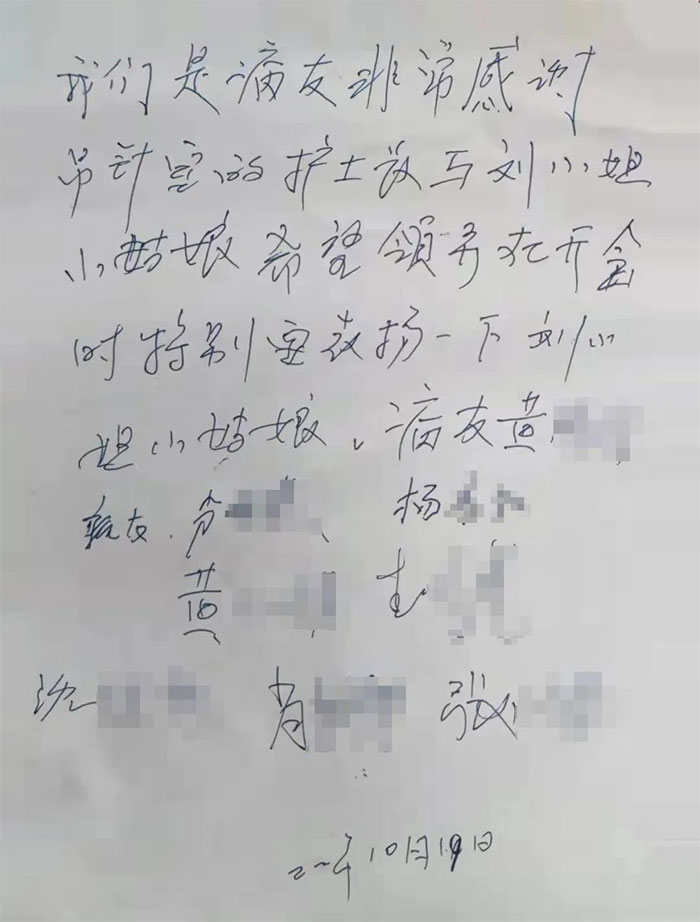 我们是病友非常感谢
吊针室的护士长与刘小姐
小姑娘希望领导在开会
时特别要表扬一下刘小
姐小姑娘、病友黄
病友、 杨
黄
沈 肖 张
10月19日